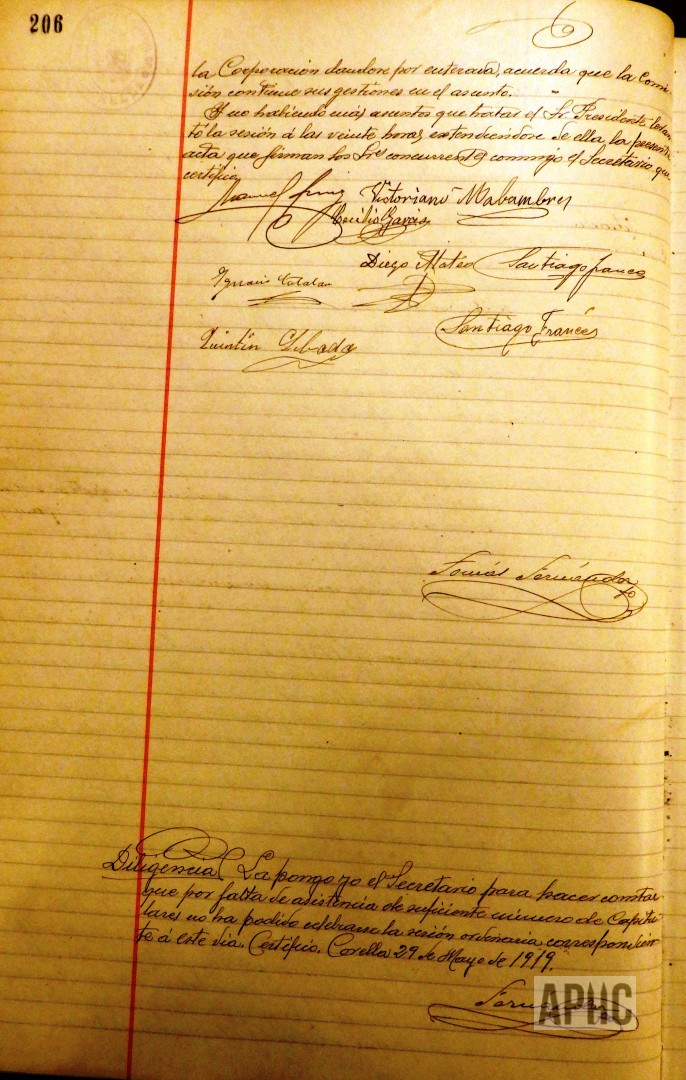 206
la Corporación dandose por enterada, acuerda que la Comi
sión continue sus gestiones en el asunto.
Y no habiendo más asuntos que tratar el Sr. Presidente levan
tó la sesión á las veinte horas extendiéndose de ella la presente
acta que firman los Sres concurrentes conmigo el Secretario que
certifico
Manuel Victoriano Mabambres
Cecilio Garcia
Diego Mateo Santiago Francés
Ignacio Catalan
Santiago Francés
Quintín
Tomás Fernández
Diligencia La pongo yo el Secretario para hacer constar
que por falta de asistencia de suficiente número de Capitu
lares no ha podido celebrarse la sesión ordinaria correspondien
te á este dia. Certifico. Corella 29 de Mayo de 1919.
Fernández
APHC